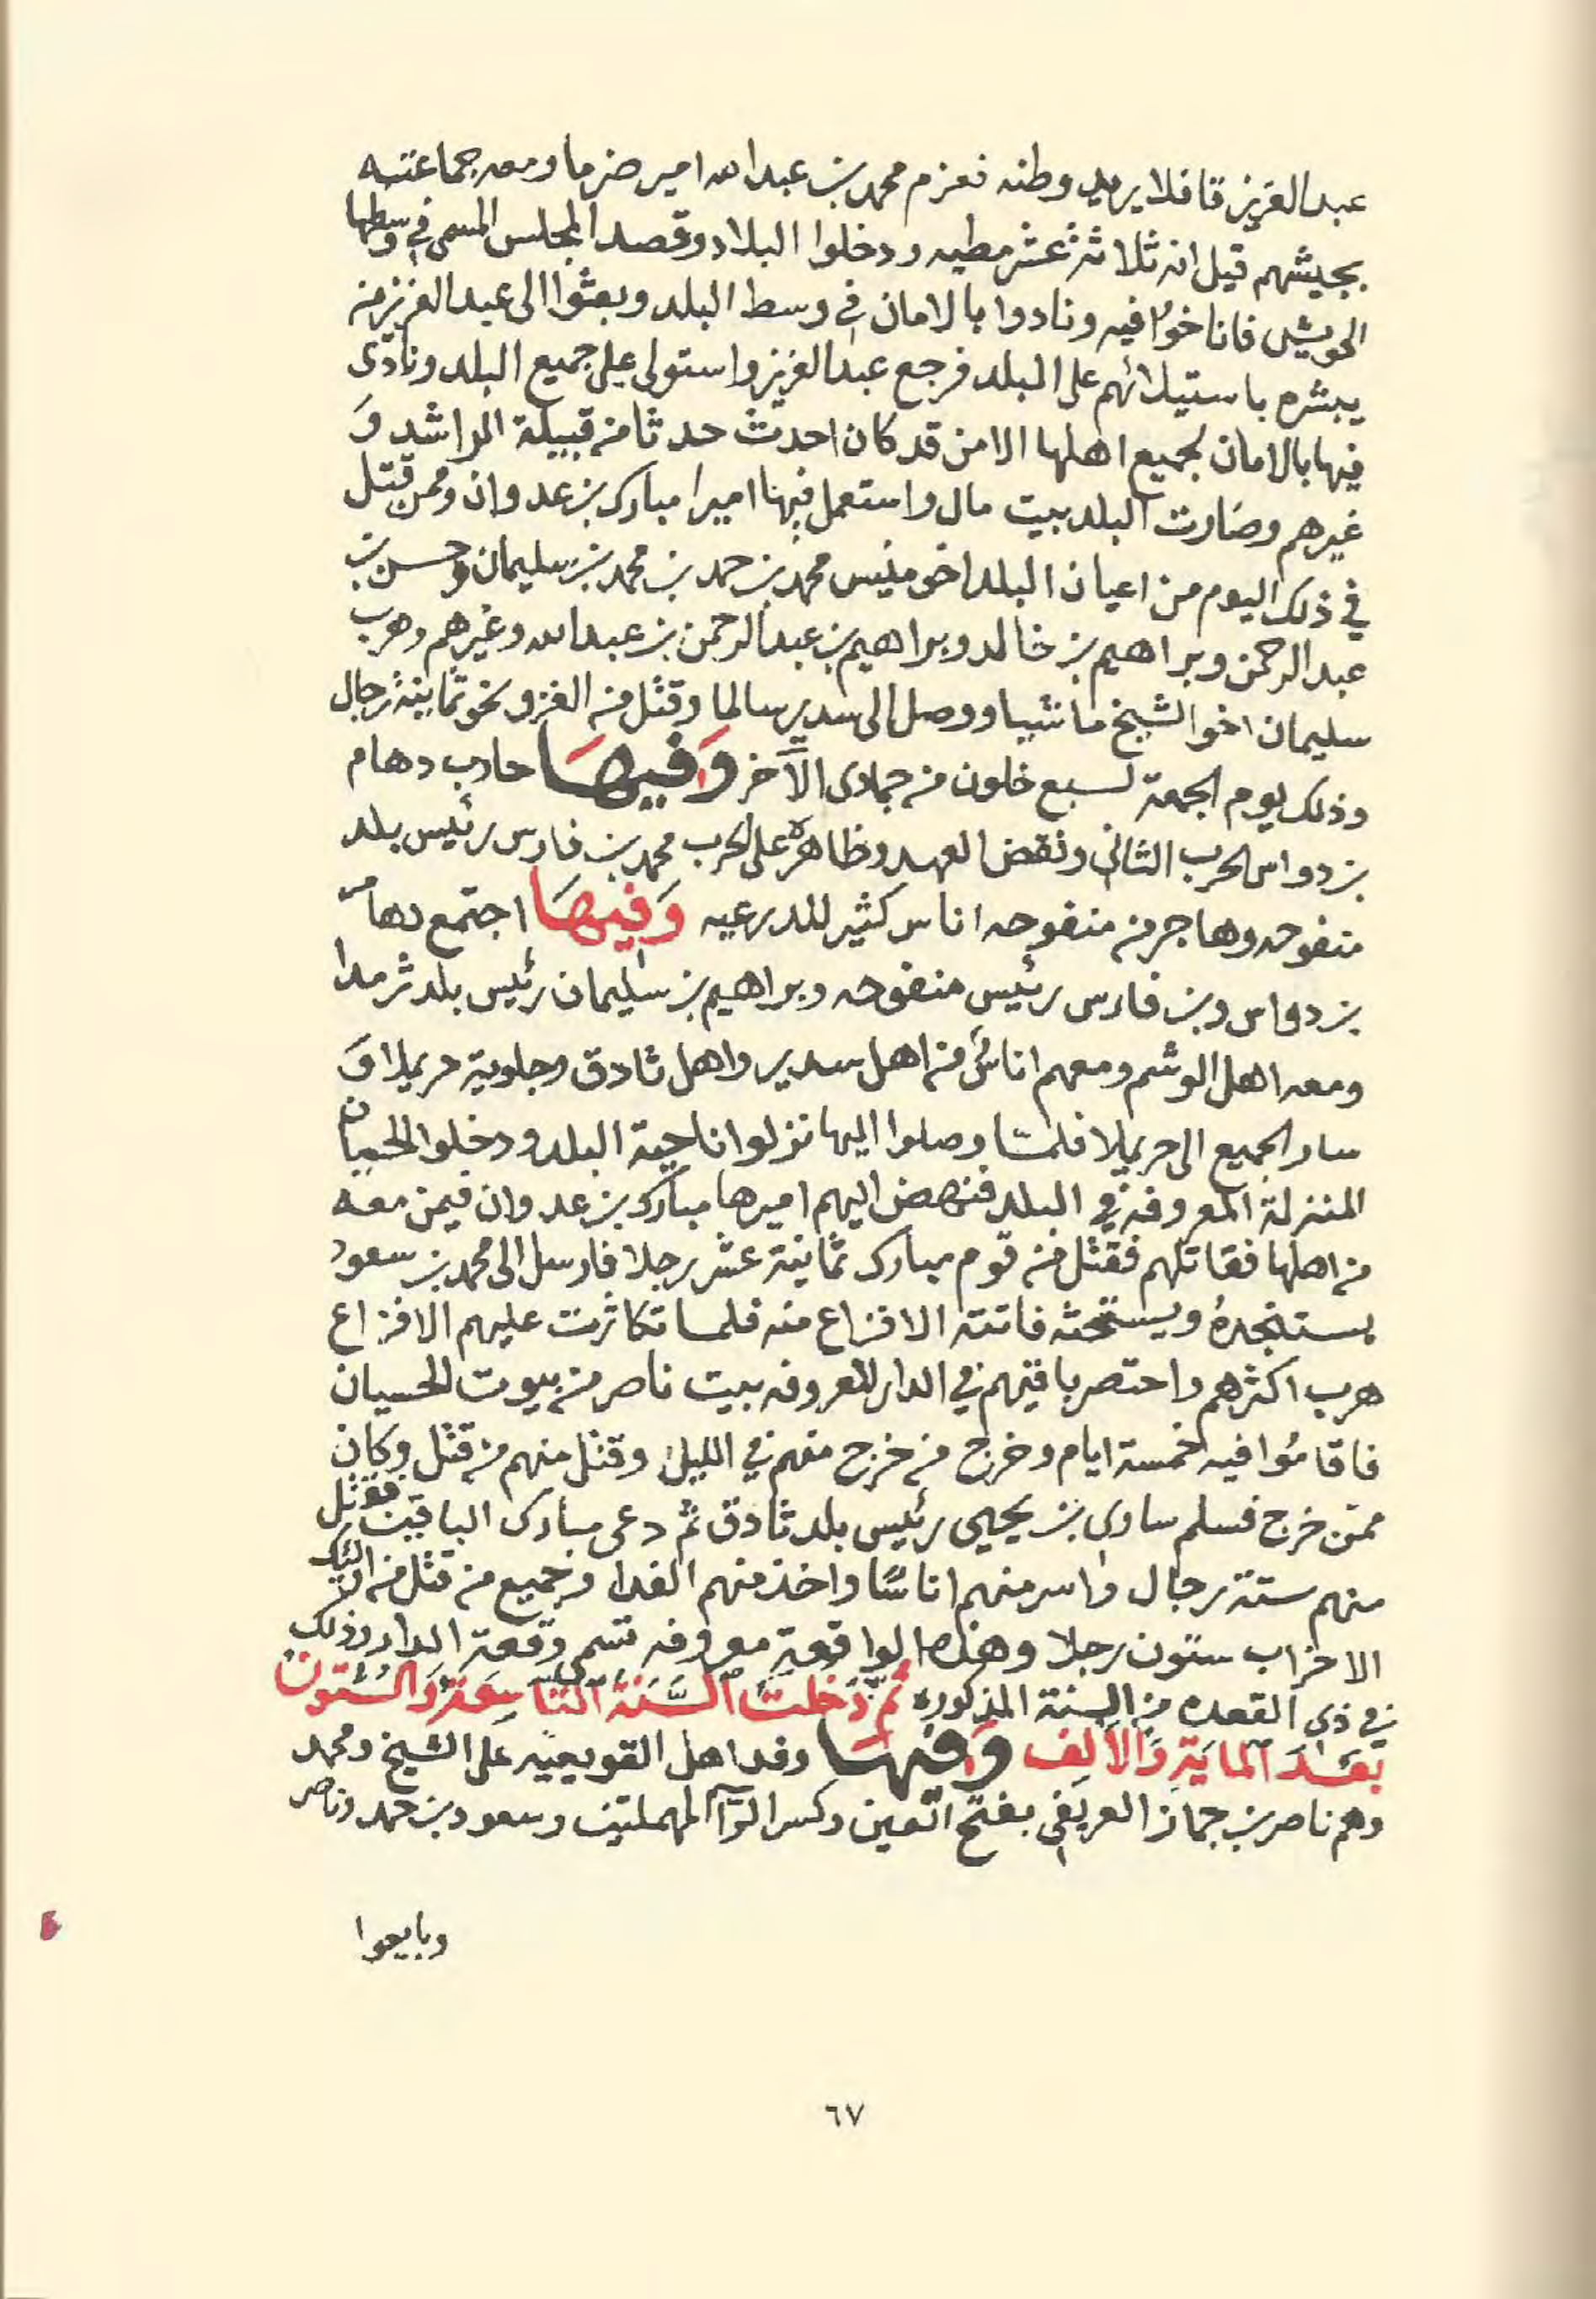 عبد العزيز قافلا يريد وطنه فعزم محمد بن عبد الله امير ضرما ومعه جماعته
بجيشهم قيل انه ثلاثة عشر مطيه ودخلوا البلاد وقصد المجلس المسمى في وسطها
الحويش فاناخوا فيه ونادوا بالامان في وسط البلد وبعثوا الى عبد العزيز من
يبشره باستيلائهم على البلد فرجع عبد العزيز واستولى على جميع البلد ونادى
فيها بالامان لجميع اهلها الا من قد كان احدث حدثا من قبيلة الراشد وَ
غيرهم وصارت البلد بيت مال واستعمل فيها اميرا مبارك بن عدوان وممن قتل
في ذلك اليوم من اعيان البلد اخو منيس محمد بن حمد بن محمد بن سليمان وحسن بن
عبد الرحمن وبراهيم بن خالد وبراهيم بن عبد الرحمن بن عبد الله وغيرهم وهرب
سليمان اخو الشيخ ماشيا ووصل الى سدير سالما وقتل من الغزو نحو ثمانية رجال
وذلك يوم الجمعة لسبع خلون من جمادى الآخر وَفيهَا حارب دهام
بن دواس الحرب الثاني ونقض العهد وظاهره على الحرب محمد بن فارس رئيس بلد
منفوحه وهاجر من منفوحه اناس كثير للدرعيه وَفِيهَا اجتمع دهام
بن دواس وبن فارس رئيس منفوحه وبراهيم بن سليمان رئيس بلد ثرمدا
ومعه اهل الوشم ومعهم اناس من اهل سدير واهل ثادق وجلوية حريملا وَ
سار الجميع الى حريملا فلمّا وصلوا اليها نزلوا ناحية البلد ودخلوا الحسيان
المنزلة المعروفة في البلد فنهض اليهم اميرها مبارك بن عدوان فيمن معه
من اهلها فقاتلهم فقتل من قوم مبارك ثمانية عشر رجلا فارسل الى محمد بن سعود
يستنجدهُ ويستحثه فاتته الافزاع منه فلما تكاثرت عليهم الافزاع
هرب اكثرهم واحتصر باقيهم في الدار المعروفه ببيت ناصر من بيوت الحسيان
فاقامُوا فيه خمسة ايام وخرج من خرج منهم في الليل وقتل منهم من قتل وكان
ممّن خرج فسلم ساري بن يحيى رئيس بلد ثادق ثم دعى مبارك الباقين فقتل
منهم ستة رجال واسر منهم اناسًا واخذ منهم الفدا وجميع من قتل من اولئك
الاحزاب ستون رجلا وهذه الواقعة معروفه تسمى وقعة الدار وذلك
في ذي القعده من السنة المذكوره ثمّ دَخلتْ السَّنَة التّاسِعَة وَالسّتون
بَعْدَ المايَةِ وَالألف وَفيهَا وفد اهل القويعيه على الشيخ ومحمد
وهم ناصر بن جماز العريفي بفتح العين وكسر الرآ المهملتين وسعود بن حمد وناصر
وبايعوا
٦٧